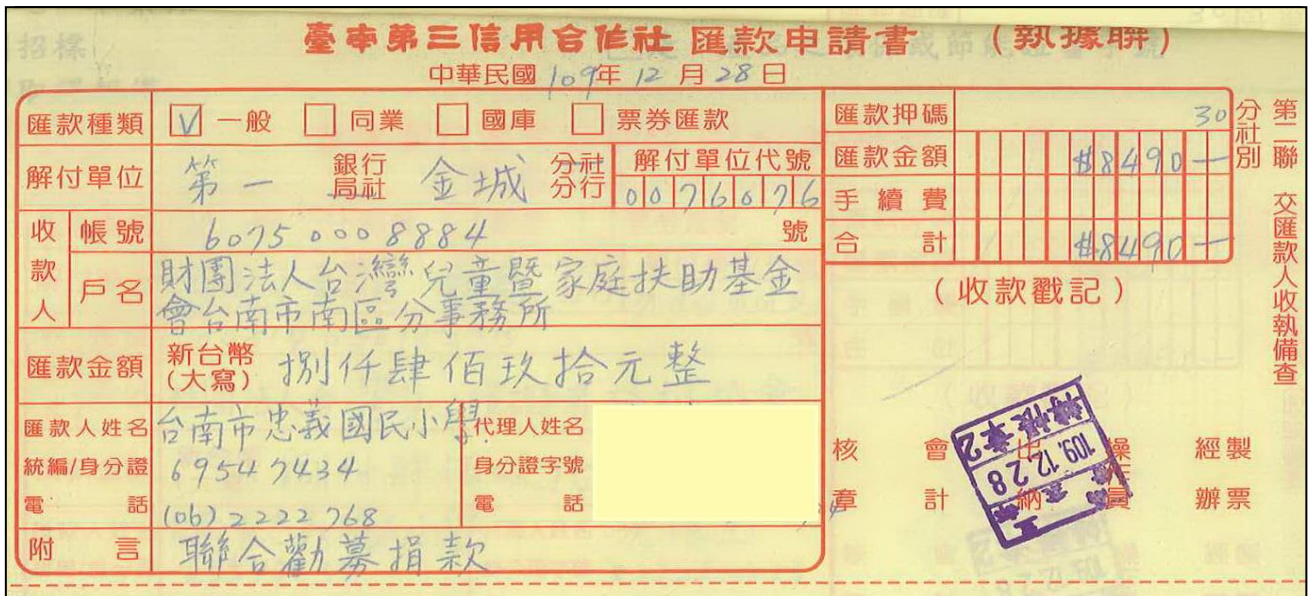 臺南第三信用合作社 匯款申請書 (執據聯)
中華民國 109年 12 月 28 日
匯款種類 V 一般 同業 國庫 票券匯款
解付單位 第一 銀行 局社 金城 分社 分行 解付單位代號 0076076
收款人 帳號 60750008884 號
戶名 財團法人台灣兒童暨家庭扶助基金
會台南市南區分事務所
匯款金額 新台幣 (大寫) 捌仟肆佰玖拾元整
匯款人姓名 台南市忠義國民小學 代理人姓名
統編/身分證 69547434 身分證字號
電話 (06)2222768 電話
附言 聯合勸募捐款
匯款押碼 30
匯款金額 $8490-
手續費
合計 $8490-
分社別
第二聯 交匯款人收執備查
(收款戳記)
轉帳章2
109.12.28
核章 會計 出納 操作員 經辦 製票